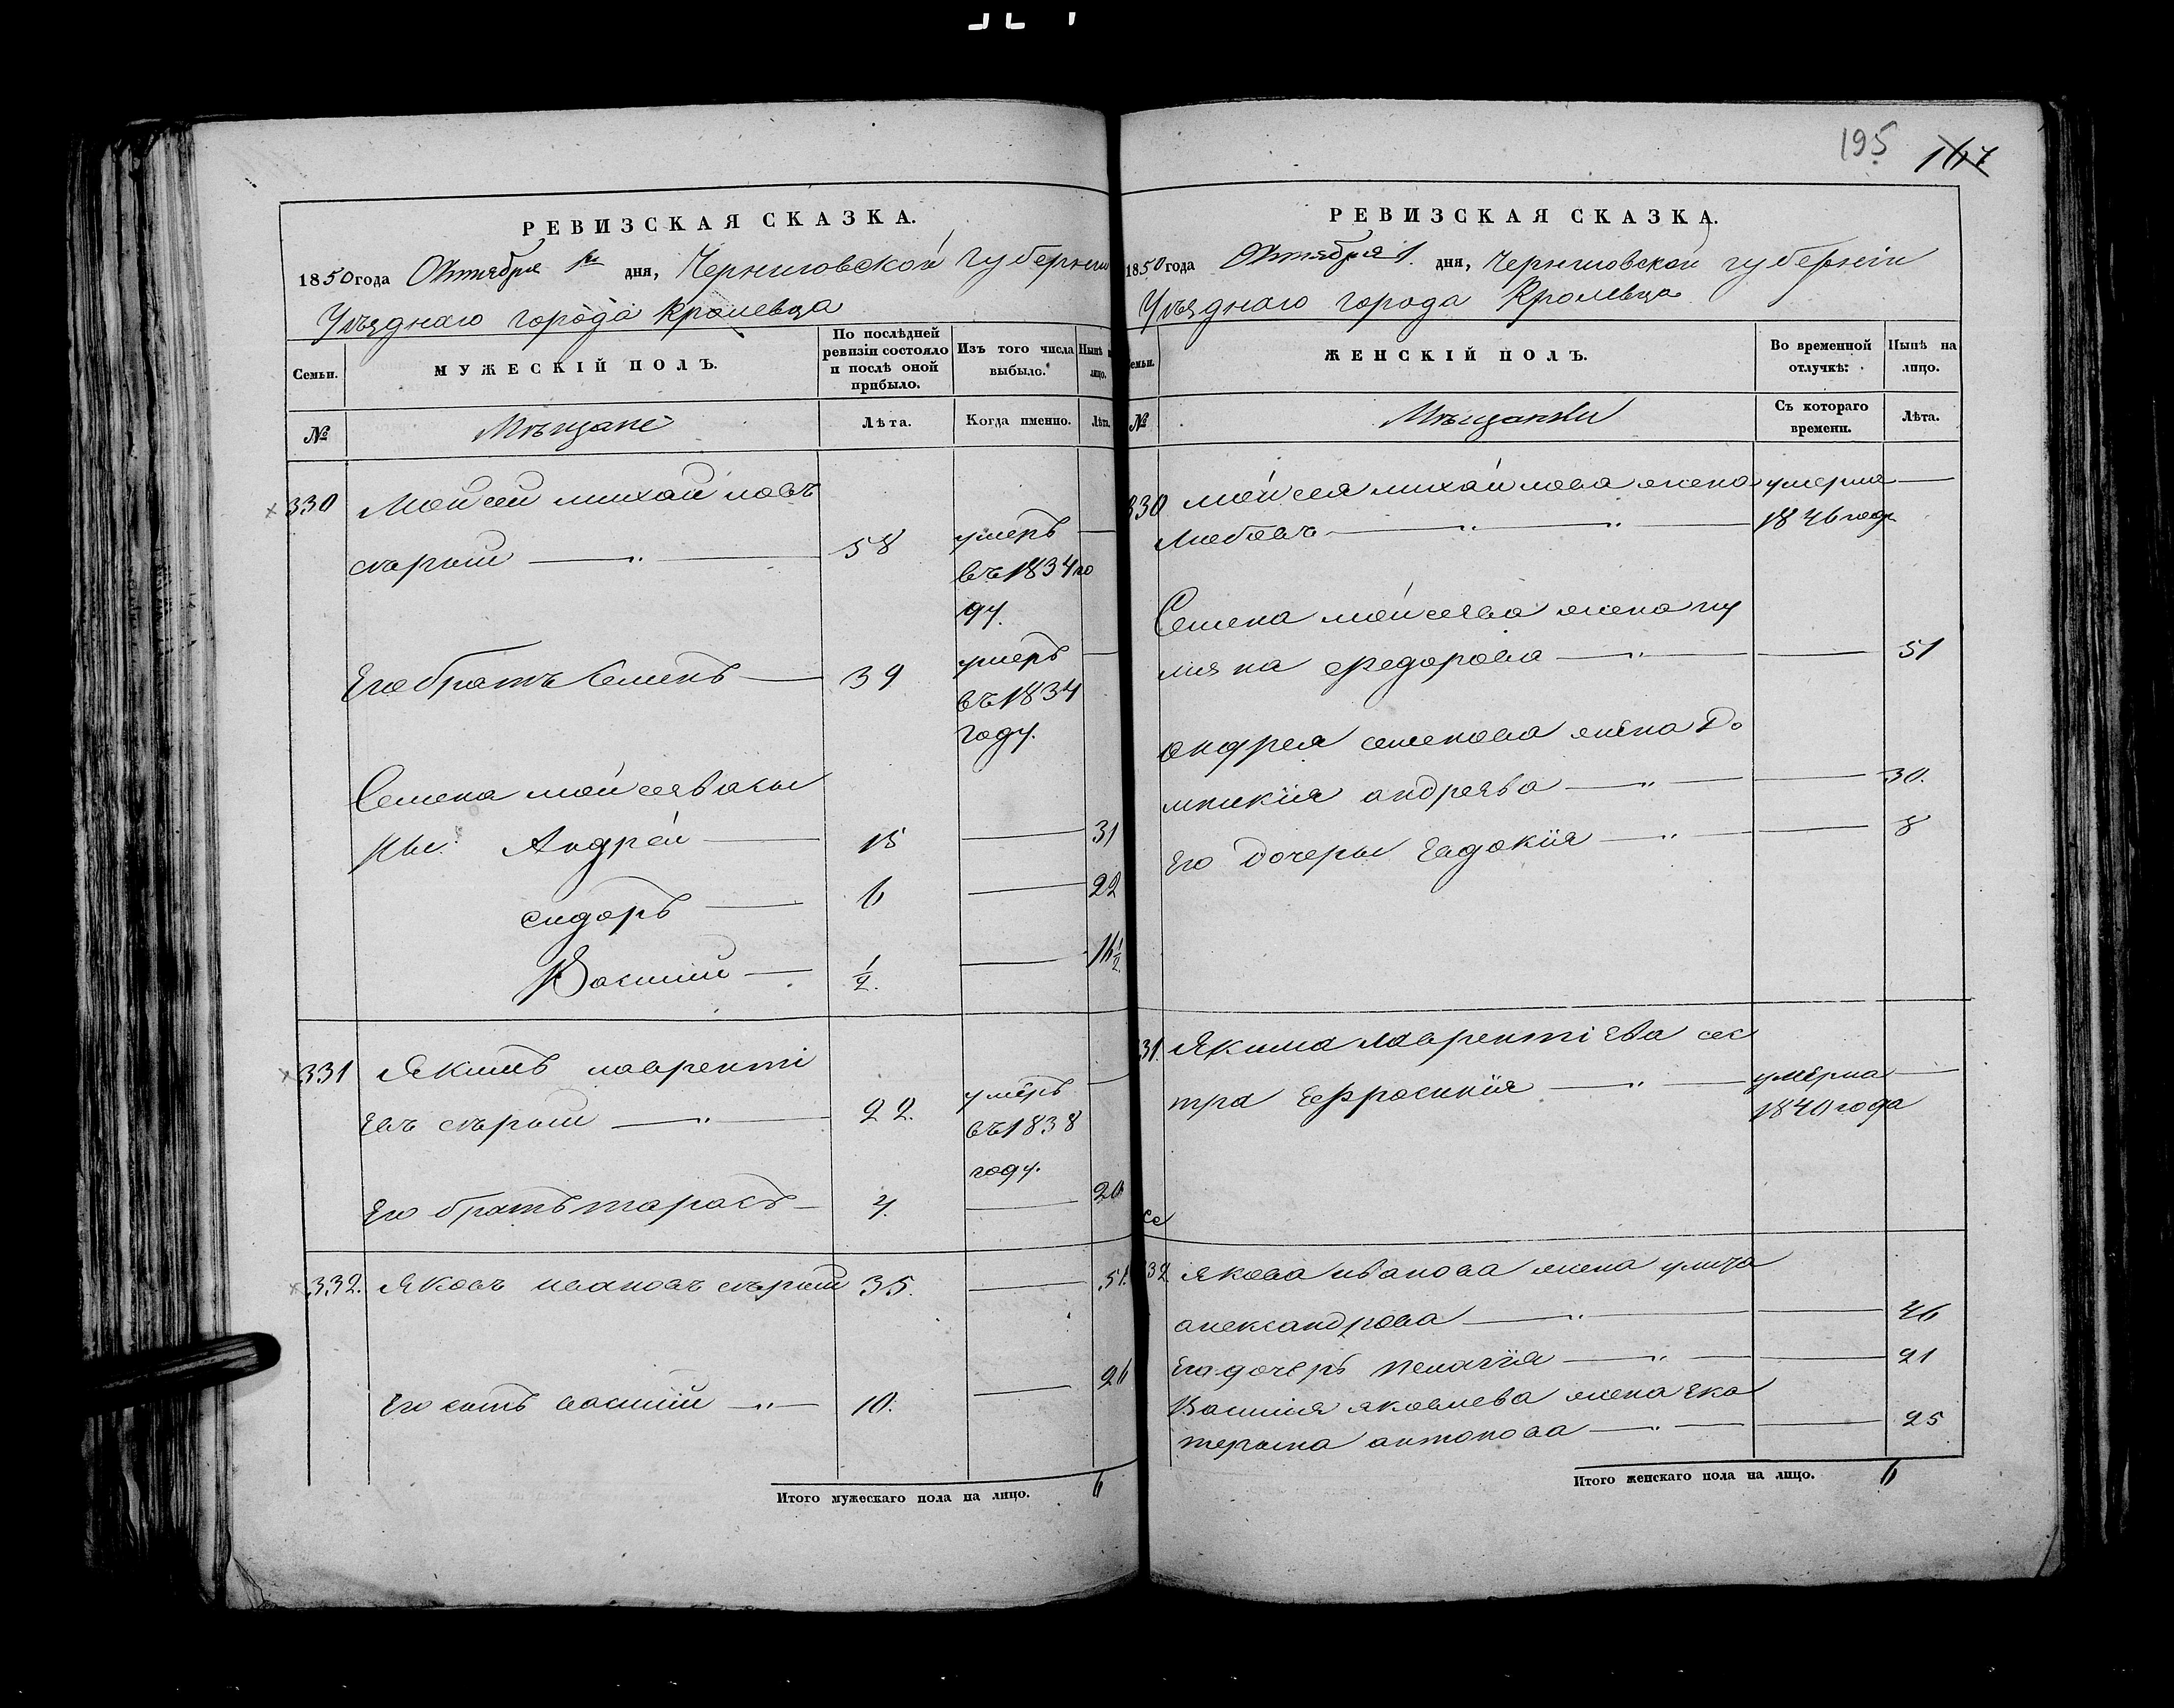 195 167
РЕВИЗСКАЯ СКАЗКА.
1850 года Октября 1го дня, Черниговской губернии
Уѣзднаго города Кролевца
Семьи.
МУЖЕСКІЙ ПОЛЪ.
По послѣдней ревизіи состояло и послѣ оной прибыло.
Изъ того числа выбыло.
Нынѣ на лицо.
№
Мѣщане
Лѣта.
Когда именно.
Лѣта.
330 Мойсей михайловъ
сѣрый — 58 умеръ —
въ 1834 го
ду.
Его братъ Семенъ — 39 умеръ —
въ 1834
году.
Семена мойсеева сы
ны: Андрей — 15 — 31
сидоръ — 6 — 22
Василий — 1/2. — 16 1/2.
331 Якимъ лавренті
евъ сѣрый — 22. умеръ —
въ 1838
году.
Его братъ тарасъ — 4. — 20
332. Яковъ ивановъ сѣрый 35. — 51.
Его сынъ василий — 10. — 26
Итого мужескаго пола на лицо. 6
РЕВИЗСКАЯ СКАЗКА.
1850 года Октября 1. дня, Черниговской губерніи
Уѣзднаго города Кролевца
емьи.
ЖЕНСКІЙ ПОЛЪ.
Во временной отлучкѣ:
Нынѣ на лицо.
№
Мѣщанки
Съ котораго времени.
Лѣта.
330 мойсея михайлова жена умерла —
Любовь — 1846 года
Семена мойсеева жена гу
лияна федорова — — 51
андрея семенова жена До
мникия андреева — — 30.
Его дочеры Евдокия — — 8
31. Якима лаврентіева сес
тра Ефросиния — умерла —
1840 года
се
32 якова иванова жена улита
александрова — — 46
Его дочеръ пелагия — — 21
Василия яковлева жена ека
терына антонова — — 25
Итого женскаго пола на лицо. 6